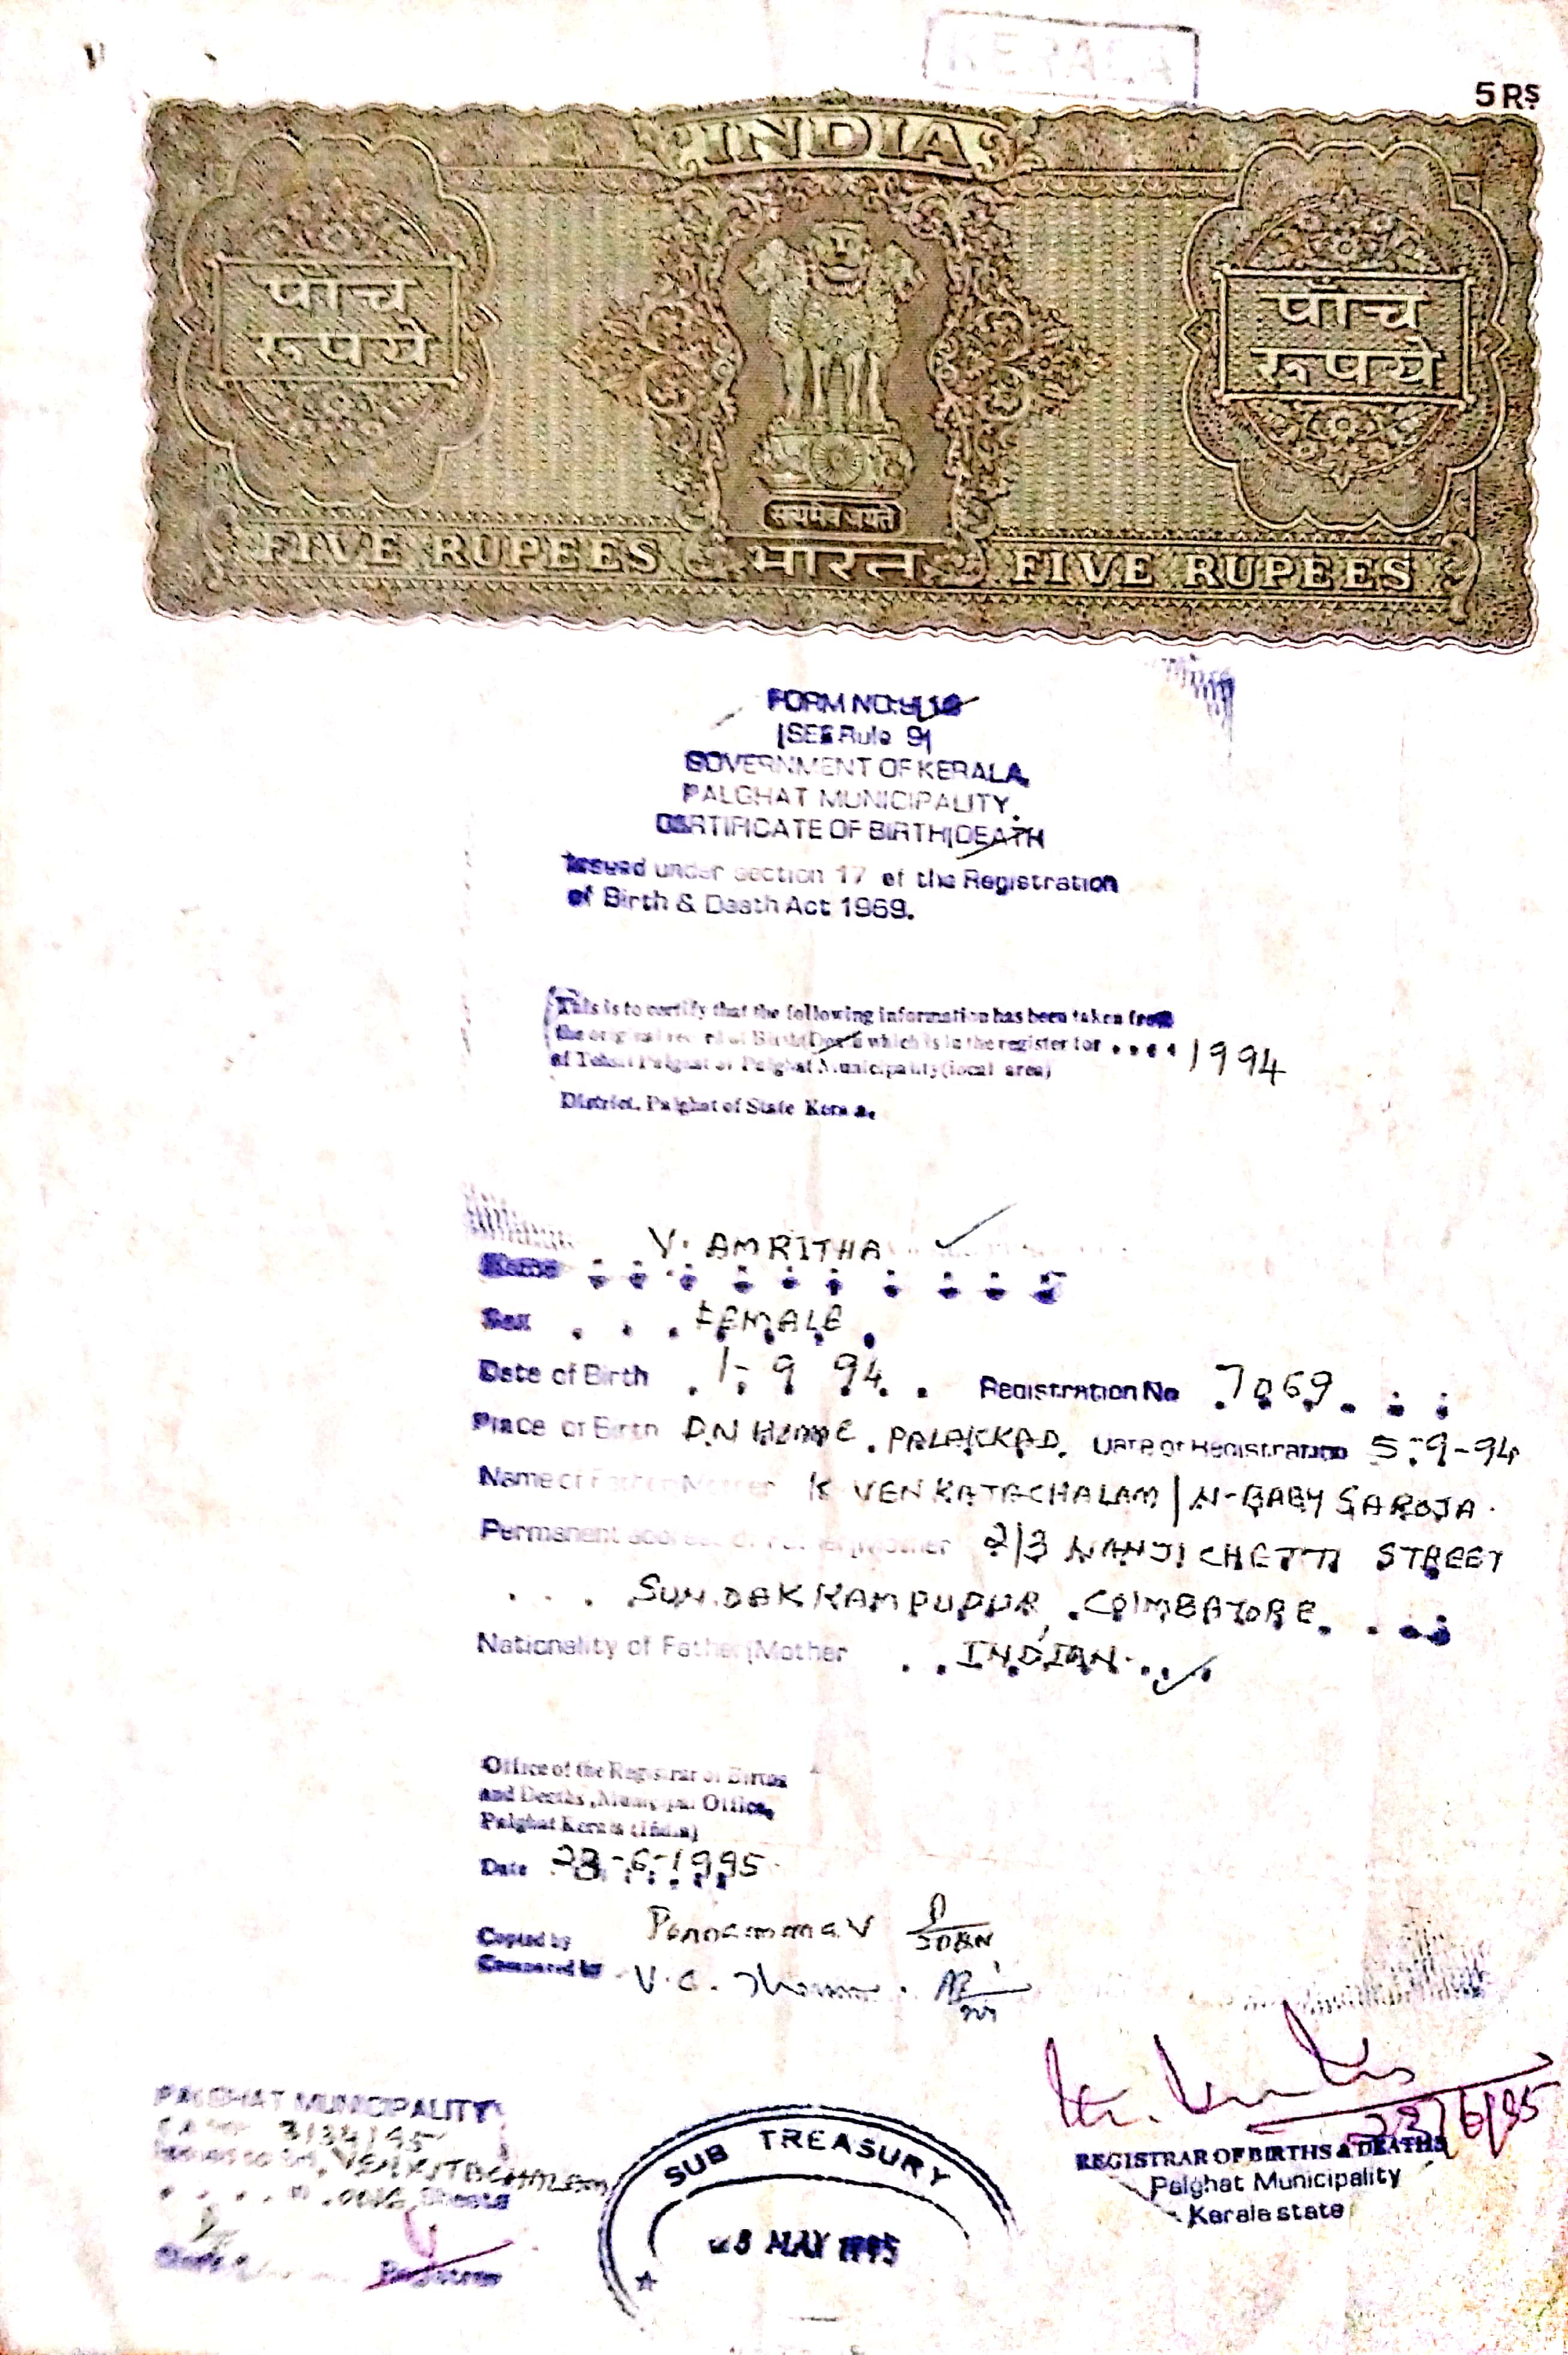 KERALA
5 RS
INDIA
पाँच रूपये
पाँच रूपये
सत्यमेव जयते
FIVE RUPEES भारत FIVE RUPEES
FORM NO:9|10
[SEE Rule 9]
GOVERNMENT OF KERALA
PALGHAT MUNICIPALITY.
CERTIFICATE OF BIRTH|DEATH
Issued under section 17 of the Registration
of Birth & Death Act 1969.
This is to certify that the following information has been taken from
the original record of Birth|Death which is in the register for .... 1994
of Palghat Municipality (local area)
District. Palghat of State Kerala.
Name V. AMRITHA
Sex . . . FEMALE .
Date of Birth 1-9 94 Registration No 7069
Place of Birth D.N Home. PALAKKAD. Date of Registration 5-9-94
Name of Father|Mother K VENKATACHALAM | N-BABY SAROJA.
Permanent address of Father|Mother 2|3 NANJI CHETTI STREET
. . . SUNDAKKAMPUDUR, COIMBATORE.
Nationality of Father|Mother . . INDIAN.
Office of the Registrar of Births
and Deaths, Municipal Office,
Palghat Kerala (India)
Date 23-6-1995
Copied by Ponnamma V
Compared by V.C. Thomas.
PALGHAT MUNICIPALITY
3134/95
Issued to VENKITACHALAM
one Sheets
Registrar
SUB TREASURY
MAY 1995
23/6/95
REGISTRAR OF BIRTHS & DEATHS
Palghat Municipality
Kerala state